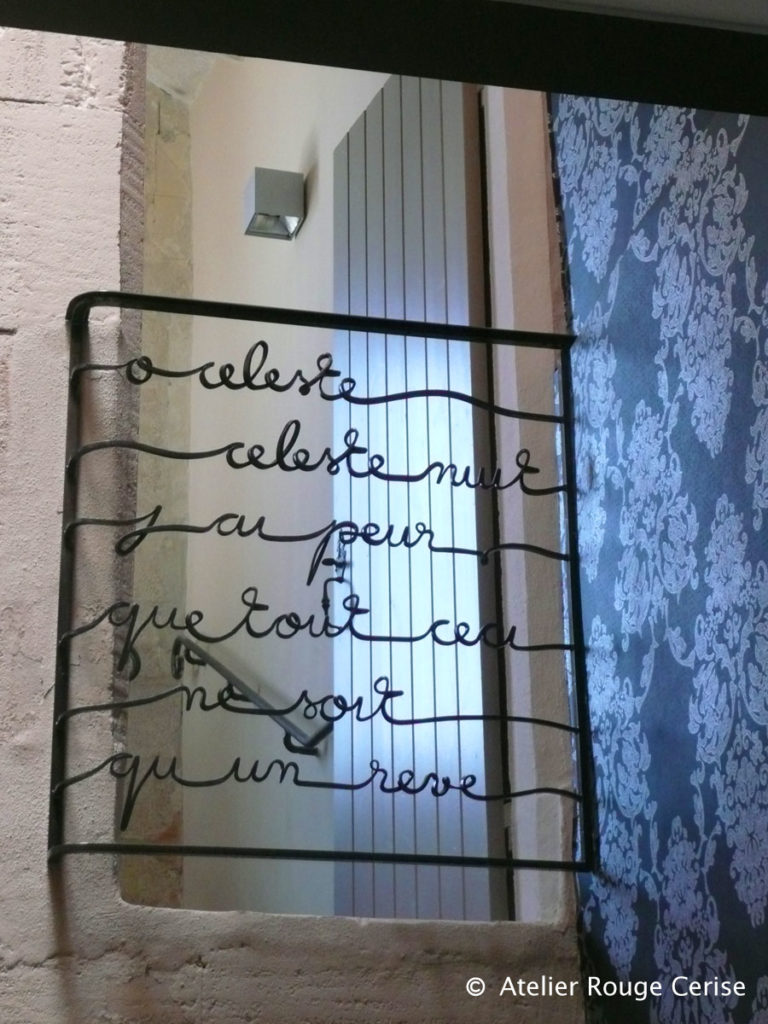 o celeste
celeste nuit
j ai peur
que tout ceci
ne soit
qu un reve
© Atelier Rouge Cerise